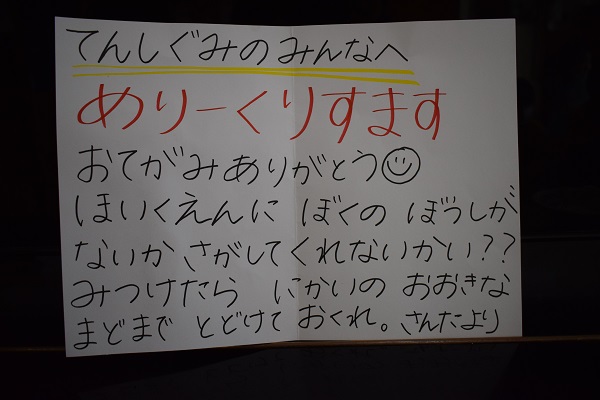 てんしぐみのみんなへ
めりーくりすます
おてがみありがとう
ほいくえんに ぼくの ぼうしが
ないか さがしてくれないかい??
みつけたら にかいの おおきな
まどまで とどけて おくれ。さんたより